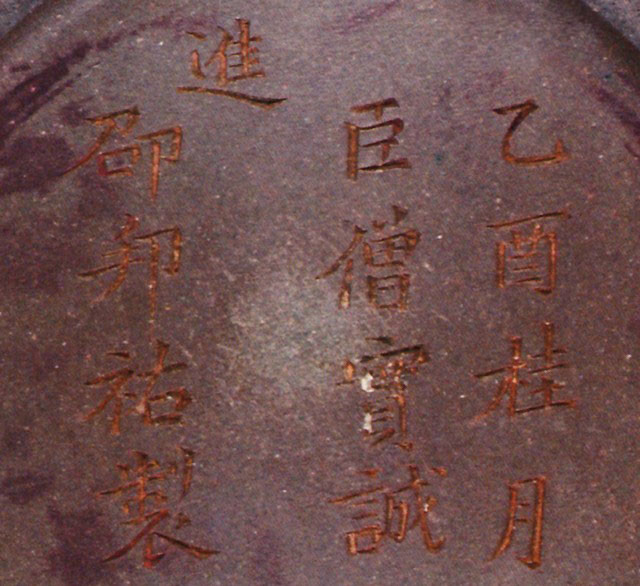 乙酉桂月
臣僧寳誠
進
邵邦祐製